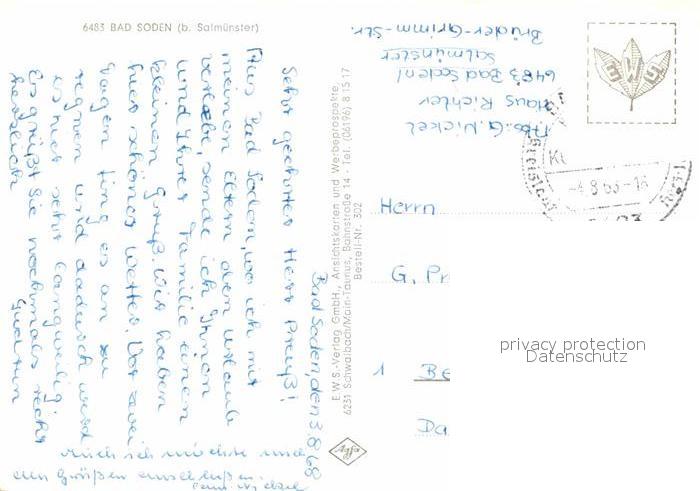 6483 BAD SODEN (b. Salmünster)
Bad Soden, den 3.8.68
Sehr geehrter Herr Preuß!
Aus Bad Soden, wo ich mit
meinen Eltern den Urlaub
verlebe, sende ich Ihnen
und Ihrer Familie einen
kleinen Gruß. Wir haben
hier schönes Wetter. Vor zwei
Tagen fing es an zu
regnen und dadurch wird
es hier sehr langweilig.
Es grüßt Sie nochmals recht
herzlich
Gudrun
Auch ich möchte mich
den Grüßen anschließen.
E.W.S.-Verlag GmbH., Ansichtskarten und Werbeprospekte,
6231 Schwalbach/Main-Taunus, Bahnstraße 14 - Tel. (06196) 8 15 17
Bestell-Nr. 302
Agfa
Abs. G. Nickel
Haus Richter
6483 Bad Soden/
Salmünster
Brüder-Grimm-Str.
EWS
-4.8.68-18
Herrn
G. Pr
1 BE
Da
privacy protection
Datenschutz